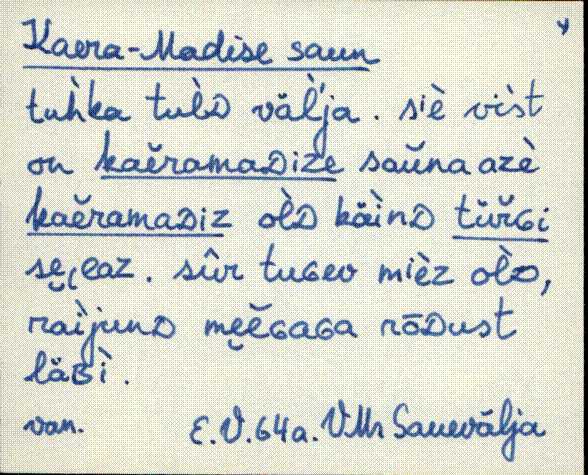 Kaera-Madise saun
tuh̀ka tul̀D väl̆'ja. siè vis̀t
on kaĕramaDize saŭna azè
kaĕramaDiz ol̀D käìnD tŭŕGi
sôr tuGev mièz ol̀D,
raìjunD mĕĕGaGa rōDust
läBì.
van. E.V. 64 a. VMr Sauevälja